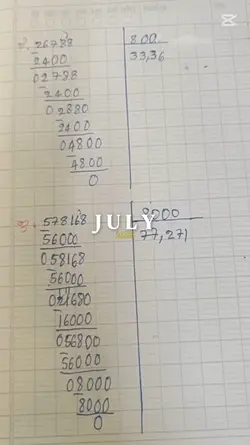 26788 | 800
2400 | 33,36
02788
2400
02880
2400
04800
4800
0
578168 | 8000
56000 | 77,271
JULY
058168
56000
021680
16000
056800
56000
08000
8000
0